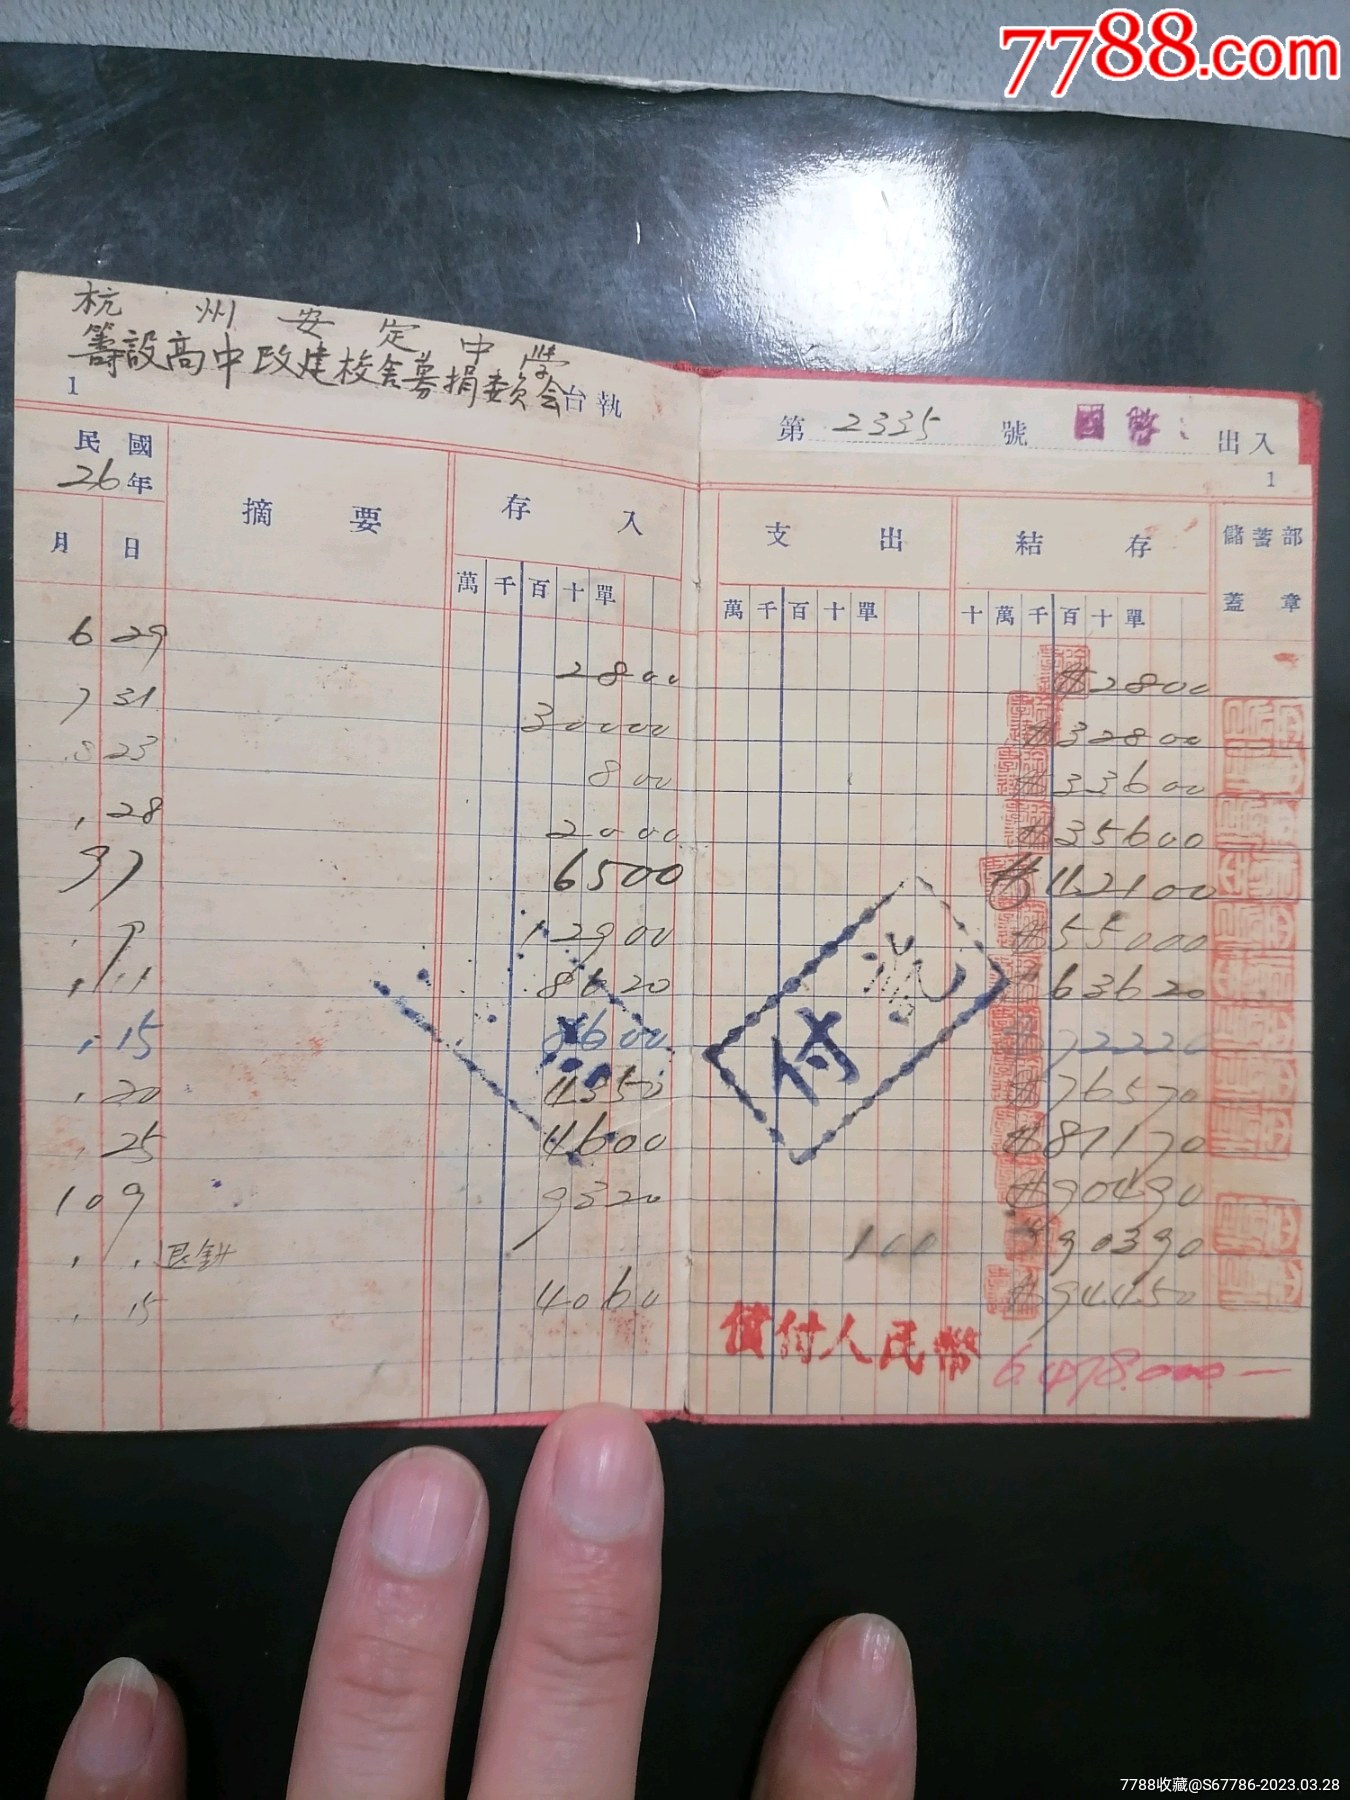 7788.com
杭州安定中學
籌設高中改建校舍募捐委員会台執
1
第2335號 出入
1
民國26年
月 日 摘要 存入 支出 結存 儲蓄部蓋章
萬 千 百 十 單 萬 千 百 十 單 十 萬 千 百 十 單
6 29 2800 2800
7 31 30000 32800
8 23 800 33600
, 28 2000 35600
9 7 6500 42100
, 9 12900 55000
, 11 8620 63620
, 15 8600 72220
, 20 4350 76570
, 25 4600 81170
10 9 9320 90490
, , 100 90390
, 15 4060 94450
付 訖
償付人民幣 6,478.000—
7788收藏@S67786-2023.03.28